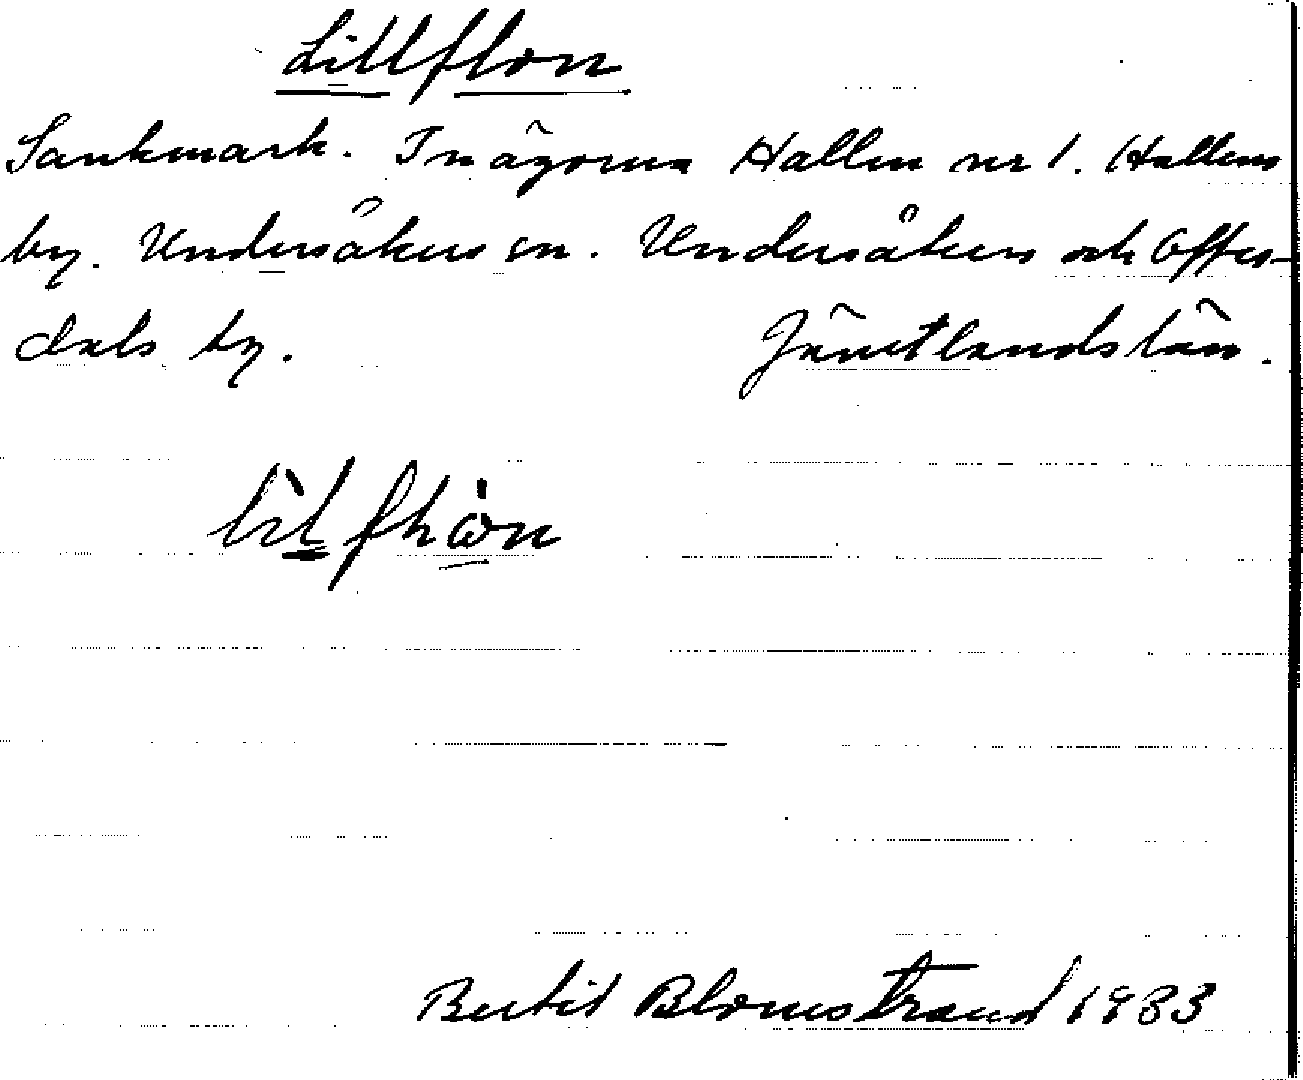 Littflon
Sankmark. Inägorna Hallen nr 1. Hallens
by. Undersåkers sn. Undersåkers och Offer-
dals tg. Jämtlandslän.
Bertil Blomstrand 1983